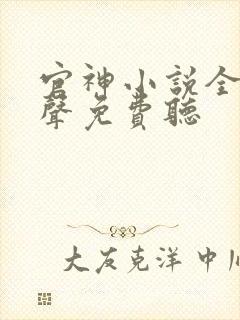 官神小説全
聲免費聽
大友克洋 中川